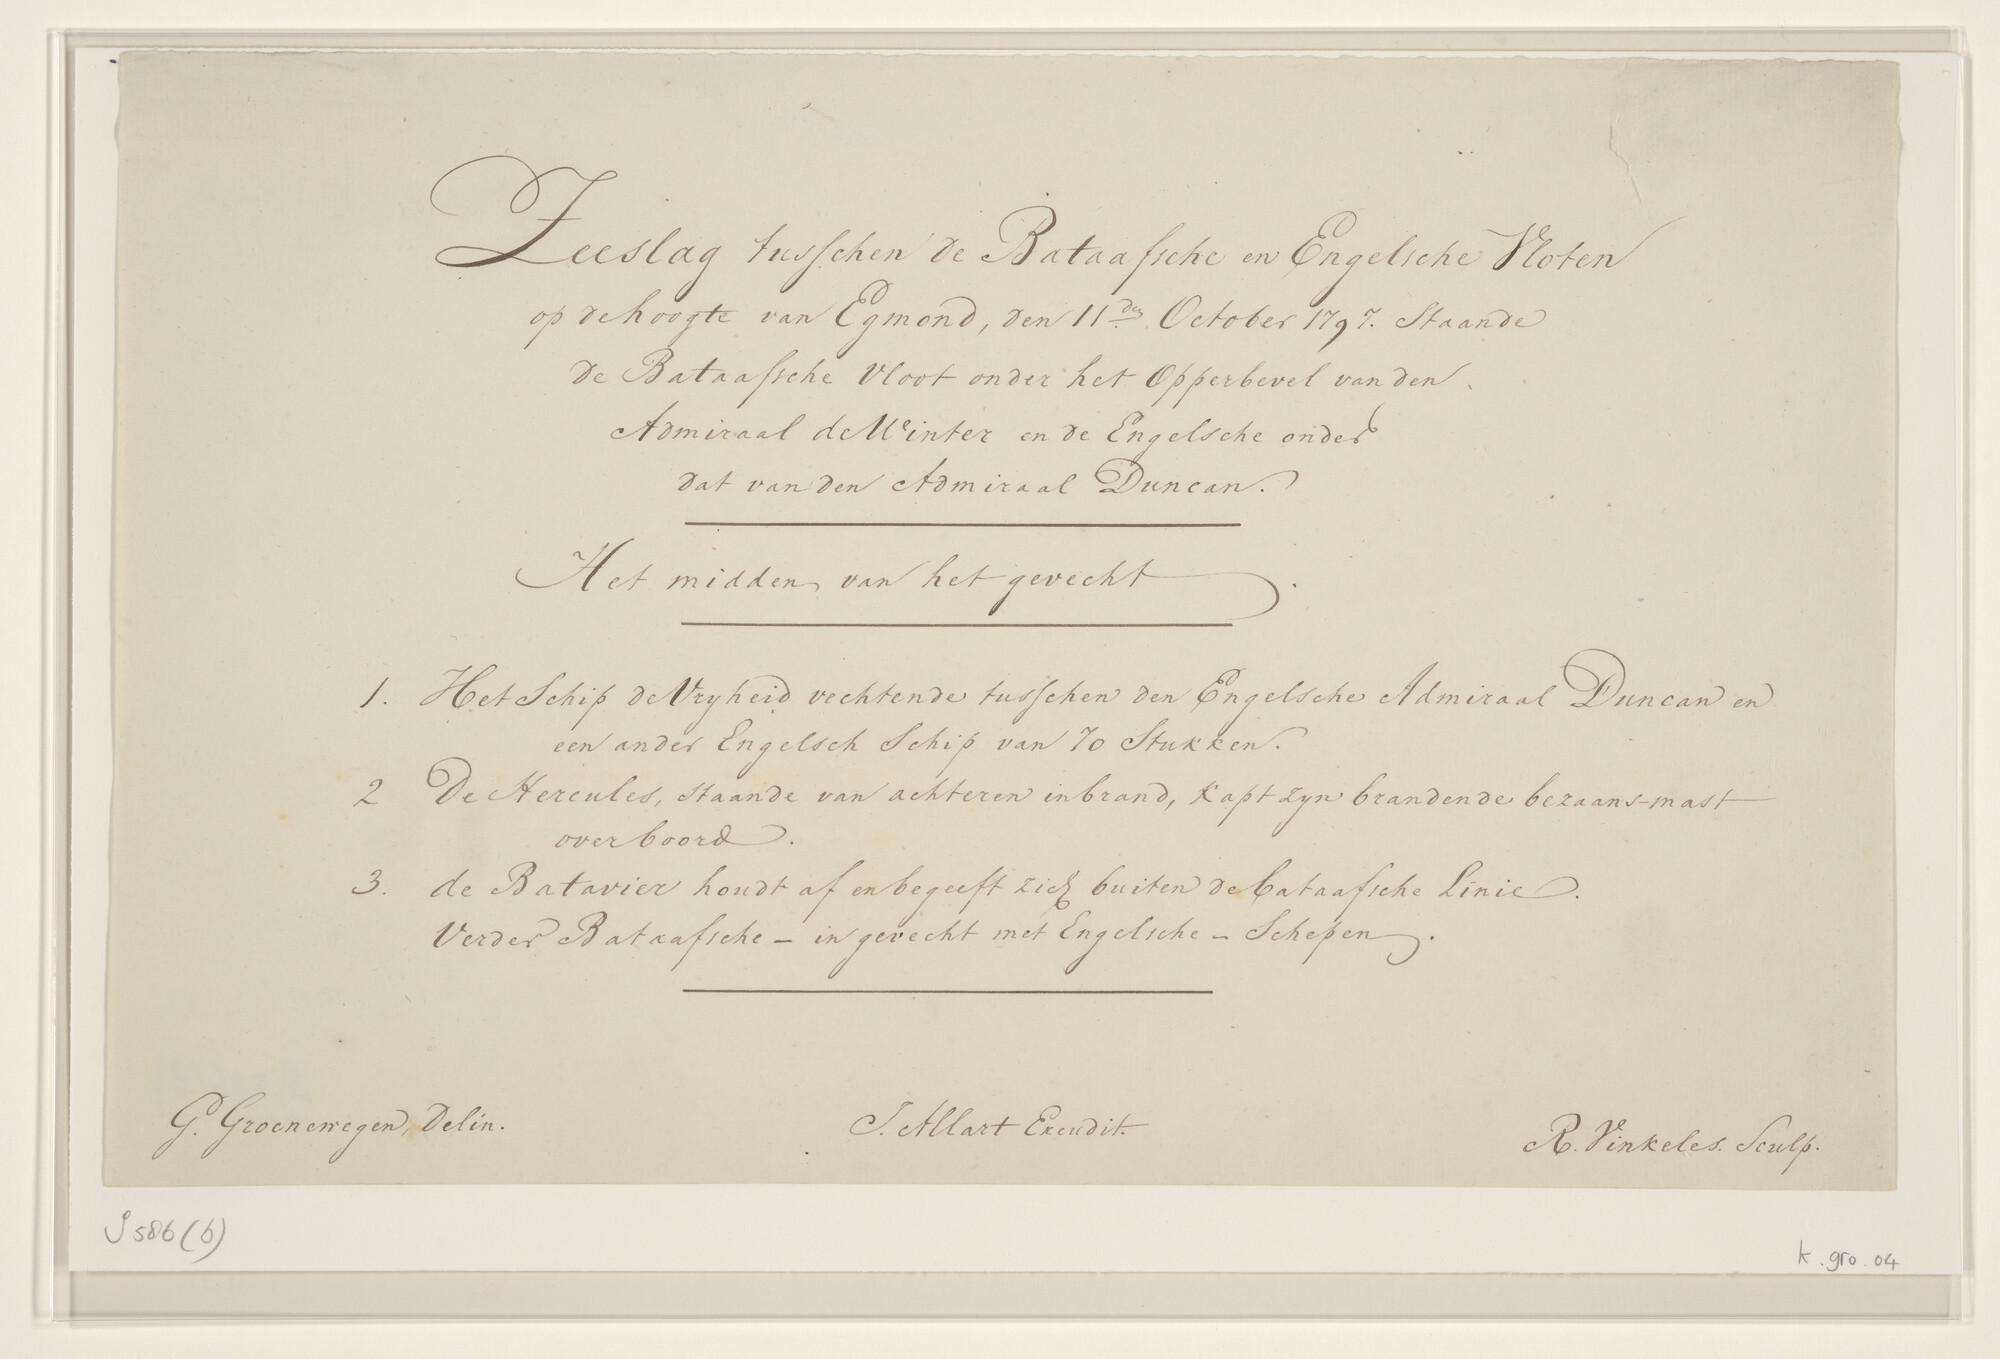 Zeeslag tusschen de Bataafsche en Engelsche Vloten
op de hoogte van Egmond, den 11den October 1797. Staande
de Bataafsche Vloot onder het Opperbevel van den
Admiraal de Winter en de Engelsche onder
dat van den Admiraal Duncan.
Het midden van het gevecht.
1. Het Schip de Vryheid vechtende tusschen den Engelsche Admiraal Duncan en
een ander Engelsch Schip van 70 Stukken.
2 De Hercules, staande van achteren in brand, kapt zyn brandende bezaans-mast
over boord.
3. de Batavier houdt af en begeeft zich buiten de bataafsche Linie.
Verder Bataafsche - in gevecht met Engelsche - Schepen.
G. Groenewegen, Delin.
J. Allart Excudit.
R. Vinkeles. Sculp.
S586(b)
k.gro.04